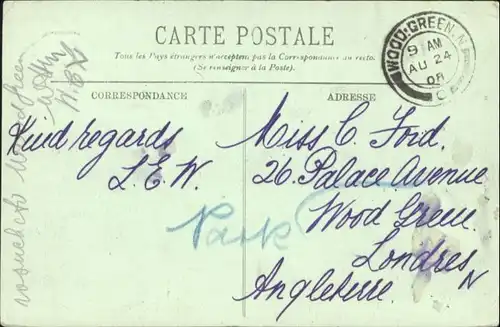 CARTE POSTALE
Tous les Pays étrangers n'acceptent pas la Correspondance au recto.
(Se renseigner à la Poste).
WOOD-GREEN. N
9 AM
AU 24
08
CORRESPONDANCE
ADRESSE
Kind regards
L.E.W.
Miss C. Ford.
26. Palace Avenue
Wood Green
Londres
N
Angleterre
Park
Wood Green